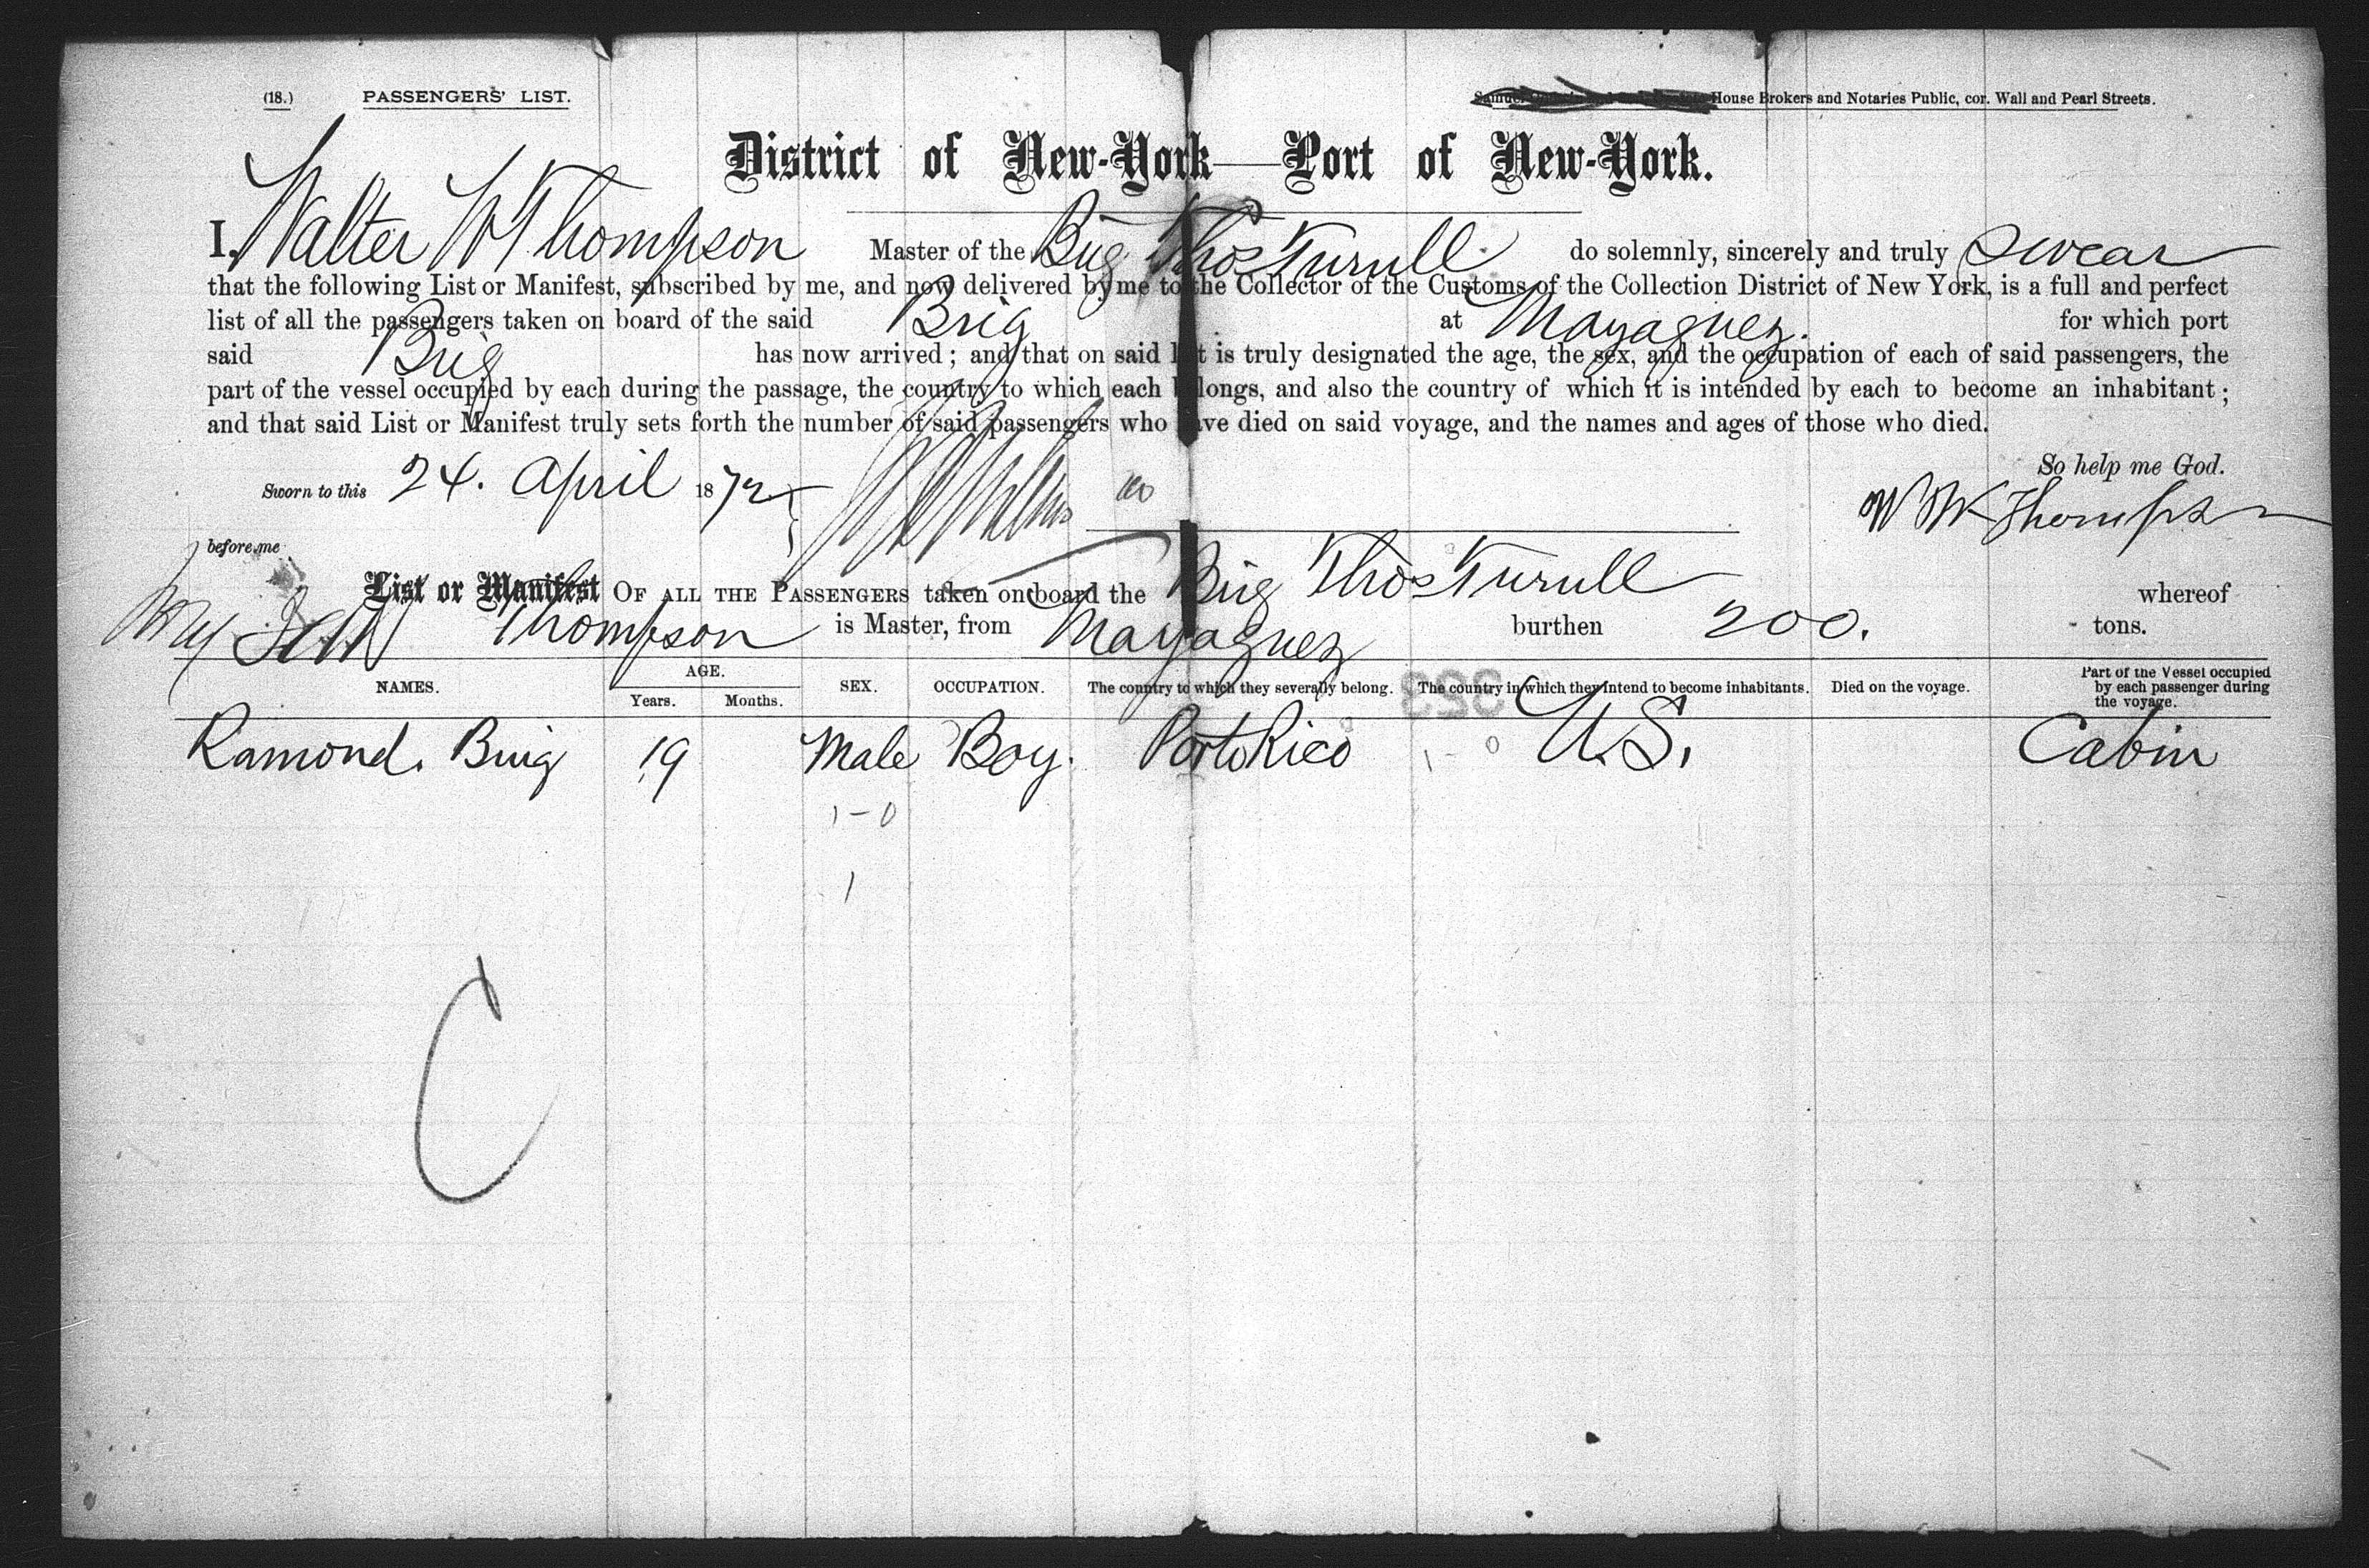 (18.) PASSENGERS' LIST. House Brokers and Notaries Public, cor. Wall and Pearl Streets.
District of New-York—Port of New-York.
I, Walter W Thompson Master of the Brig Thos Turull do solemnly, sincerely and truly swear
that the following List or Manifest, subscribed by me, and now delivered by me to the Collector of the Customs of the Collection District of New York, is a full and perfect
list of all the passengers taken on board of the said Brig at Mayaguez. for which port
said Brig has now arrived; and that on said list is truly designated the age, the sex, and the occupation of each of said passengers, the
part of the vessel occupied by each during the passage, the country to which each belongs, and also the country of which it is intended by each to become an inhabitant;
and that said List or Manifest truly sets forth the number of said passengers who have died on said voyage, and the names and ages of those who died.
So help me God.
Sworn to this 24. April 1872
W W Thompson
before me
List or Manifest OF ALL THE PASSENGERS taken on board the Brig Thos Turull whereof
My Self Thompson is Master, from Mayaguez burthen 200. tons.
NAMES. AGE. Years. Months. SEX. OCCUPATION. The country to which they severally belong. The country in which they intend to become inhabitants. Died on the voyage. Part of the Vessel occupied by each passenger during the voyage.
353
Ramond. Buig 19 Male Boy. Porto Rico 1-0 U.S. Cabin
1-0
1
C